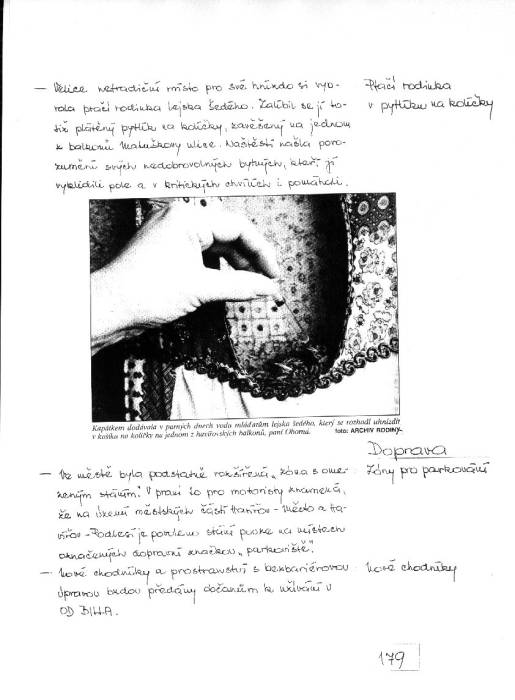 — Velice netradiční místo pro své hnízdo si vyb-
rala ptačí rodinka lejska šedého. Zalíbil se jí to-
tiž plátěný pytlík na kolíčky, zavěšený na jednom
z balkonů Matuškovy ulice. Naštěstí našla poro-
zumění svých nedobrovolných bytných, kteří jí
vyklidili pole a v kritických chvílích i pomáhali.
Ptačí rodinka
v pytlíku na kolíčky
Kapátkem dodávala v parných dnech vodu mláďatům lejska šedého, který se rozhodl uhnízdit
v košíku na kolíčky na jednom z havířovských balkonů, paní Ohorná.
foto: ARCHIV RODINY
Doprava
— Ve městě byla podstatně rozšířená „zóna s ome-
zeným stáním". V praxi to pro motoristy znamená,
že na území městských částí Havířov - město a Ha-
vířov - Podlesí je povoleno stání pouze na místech
označených dopravní značkou „parkoviště".
Zóny pro parkování
— Nové chodníky a prostranství s bezbariérovou
úpravou budou předány občanům k užívání u
OD BILLA.
Nové chodníky
179